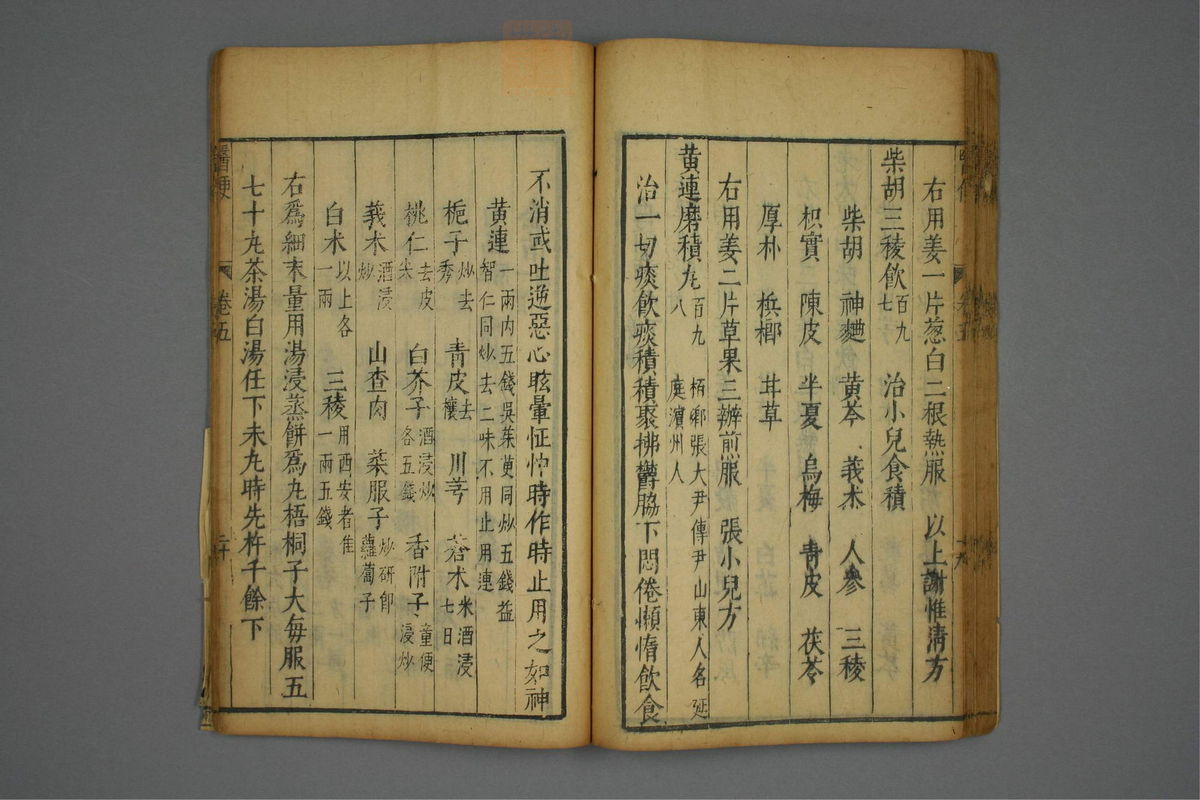 右用姜一片葱白二根熱服 以上謝惟淸方
柴胡三稜飲百九七 治小兒食積
柴胡 神麯 黄芩 莪朮 人參 三稜
枳實 陳皮 半夏 烏梅 靑皮 茯苓
厚朴 梹榔 甘草
右用姜二片草果三瓣煎服 張小兒方
黄連磨積丸百九八 栢鄉張大尹傳尹山東人名延庭濵州人
治一切痰飲痰積積聚拂鬱脇下悶倦懶惰飲食
不消或吐逆惡心眩暈怔忡時作時止用之如神
黄連一兩内五錢吳茱萸同炒五錢益智仁同炒去二味不用止用連
梔子炒去秀 青皮去穰 川芎 蒼朮米酒浸七日
桃仁去皮尖 白芥子酒浸炒各五錢 香附子童便浸炒
莪朮酒浸炒 山查肉 萊服子炒研卽蘿蔔子
白朮以上各一兩 三稜用西安者佳一兩五錢
右爲細末量用湯浸蒸餅爲丸梧桐子大每服五
七十丸茶湯白湯任下未丸時先杵千餘下
醫便 卷五 二十